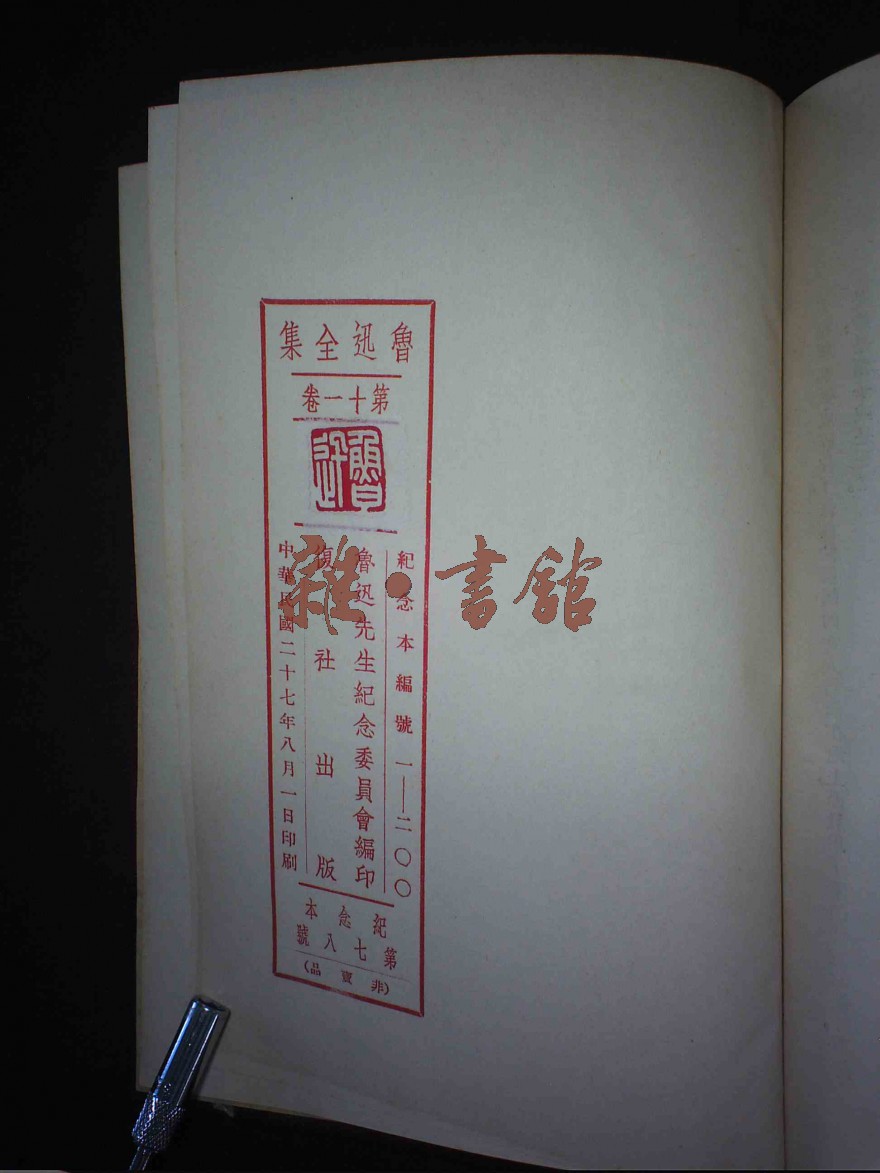 魯迅全集
第十一卷
魯迅
紀念本編號 一——二〇〇
魯迅先生紀念委員會編印
復社出版
中華民國二十七年八月一日印刷
紀念本
第七八號
(非賣品)
雜·書館